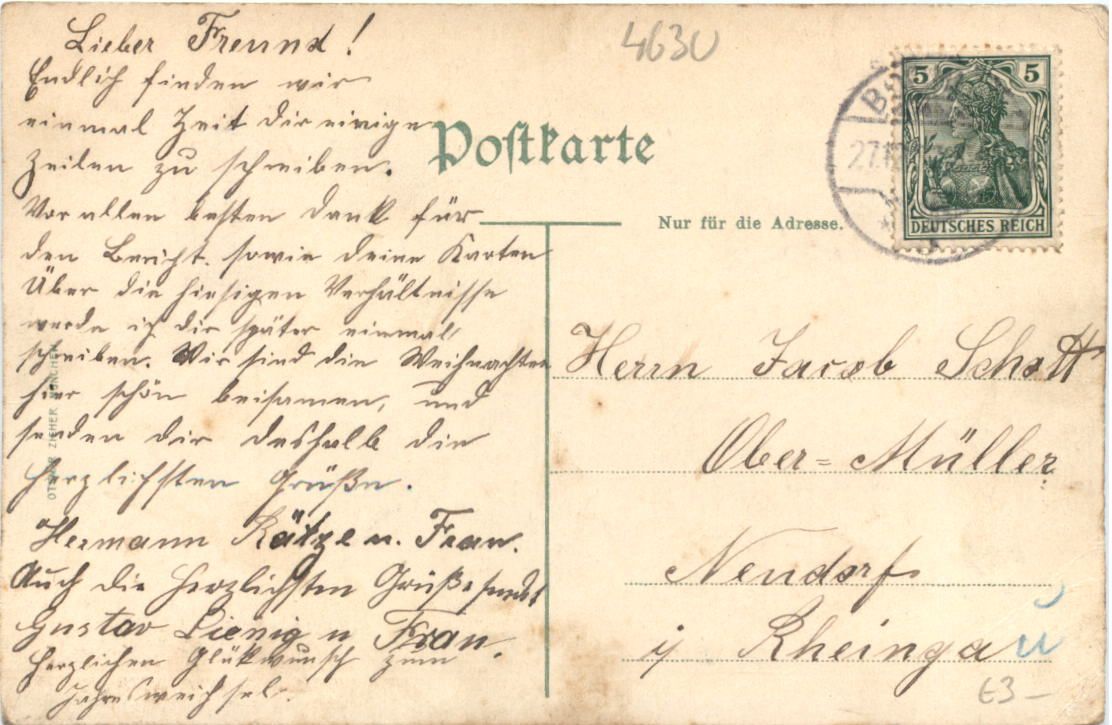 Lieber Freund!
Endlich finden wir
einmal Zeit dir einige
Zeilen zu schreiben.
Vor allen besten Dank für
den Bericht. sowie deine Karten
Über die hiesigen Verhältnisse
werde ich dir später einmal
schreiben. Wir sind die Weihnachten
hier schön beisamen, und
senden dir deshalb die
herzlichsten Grüße.
Hermann Kätze u. Frau.
Auch die herzlichsten Grüße sendet
Gustav Lienig u Frau.
Herzlichen Glükwunsch zum
Jahreswechsel.
4630
Postkarte
Nur für die Adresse.
5 5
DEUTSCHES REICH
27.12
Herrn Jacob Schott
Ober=Müller
Neudorf
i/ Rheingau
€3–
OTTMAR ZIEHER MÜNCHEN